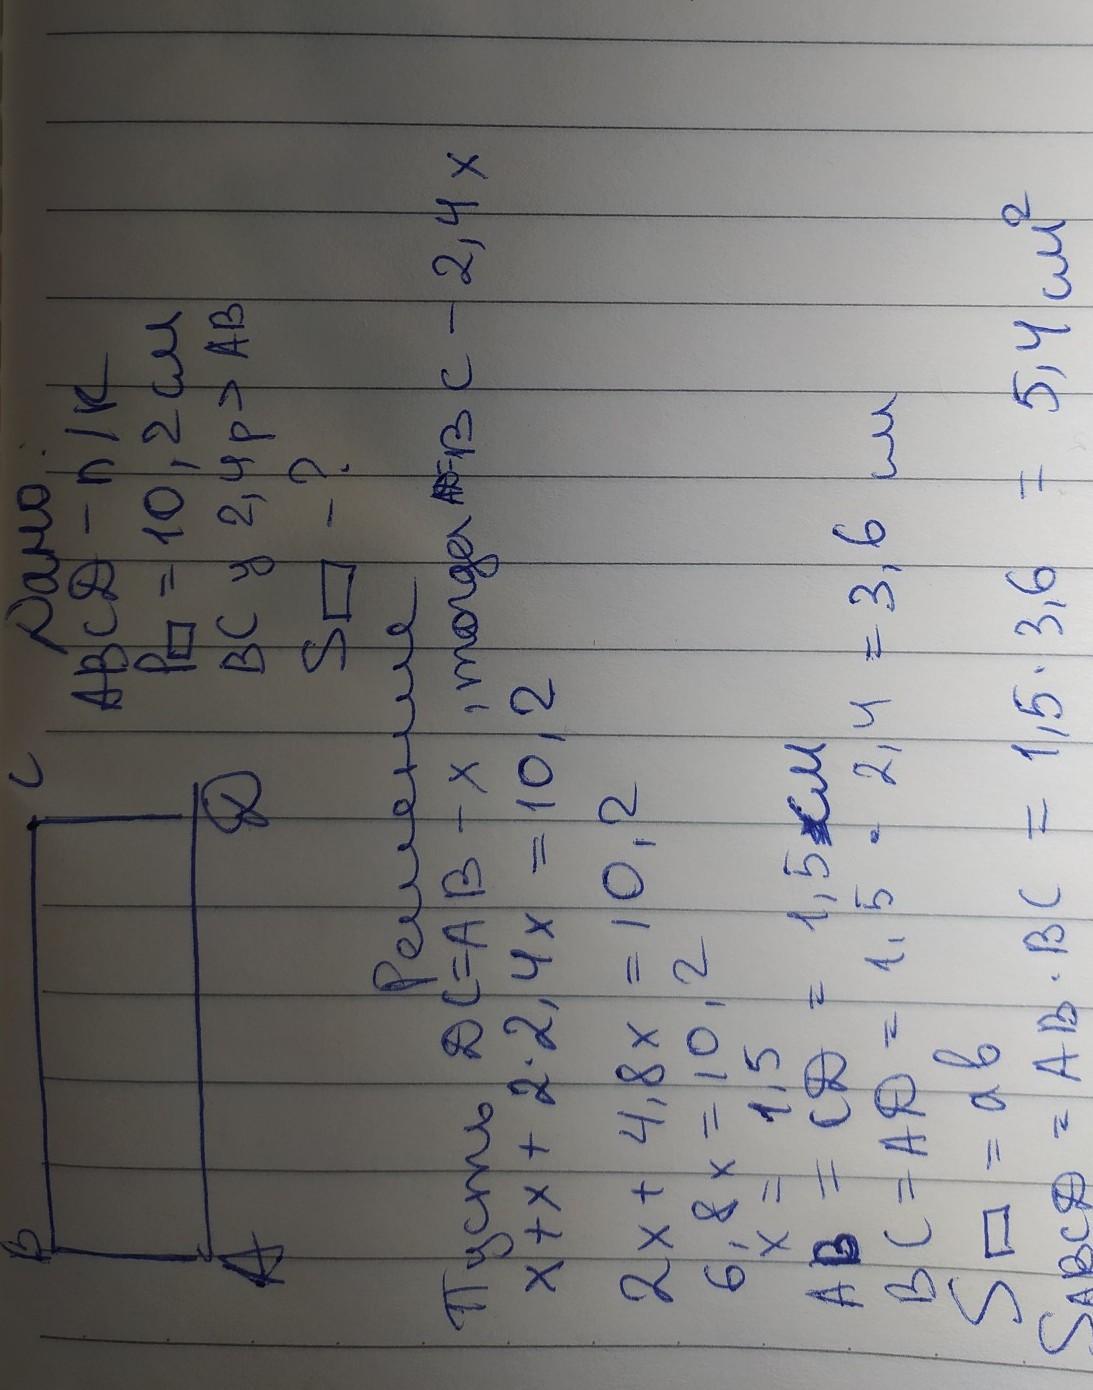 B
C
A
D
Дано:
ABCD - п/к
P□ = 10,2 см
BC у 2,4 р > AB
S□ - ?
Решение
Пусть DC=AB - x, тогда BC - 2,4x
x+x+2·2,4x = 10,2
2x + 4,8x = 10,2
6,8x = 10,2
x = 1,5
AB = CD = 1,5 см
BC = AD = 1,5 · 2,4 = 3,6 см
S□ = ab
SABCD = AB · BC = 1,5 · 3,6 = 5,4 см²